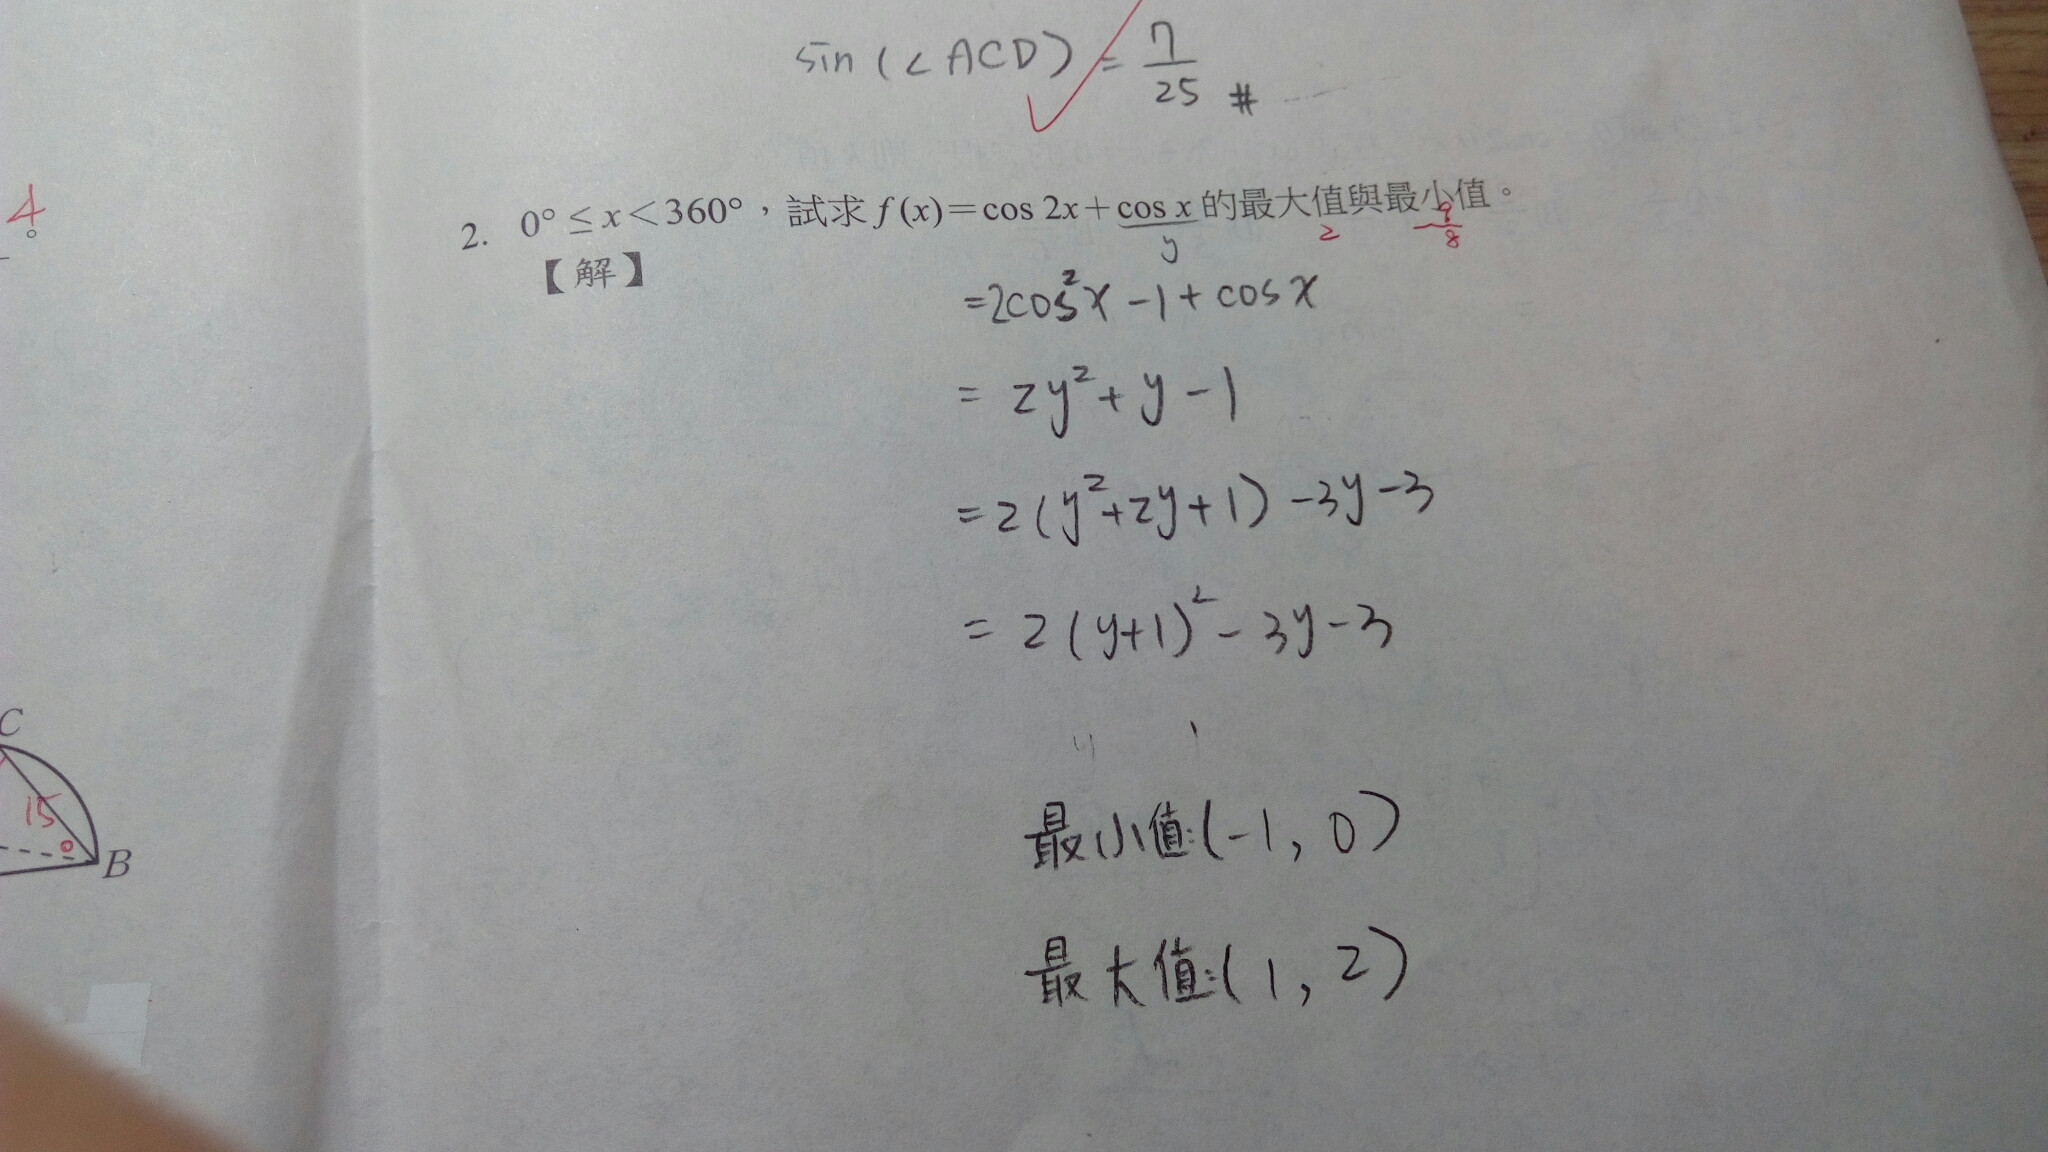 sin(∠ACD) = 7/25 #
4
2. 0° ≤ x < 360°,試求 f(x) = cos 2x + cos x 的最大值與最小值。
y
2
-9/8
【解】
= 2cos²x - 1 + cos x
= 2y² + y - 1
= 2(y² + 2y + 1) - 3y - 3
= 2(y+1)² - 3y - 3
C
15
B
最小值:(-1, 0)
最大值:(1, 2)